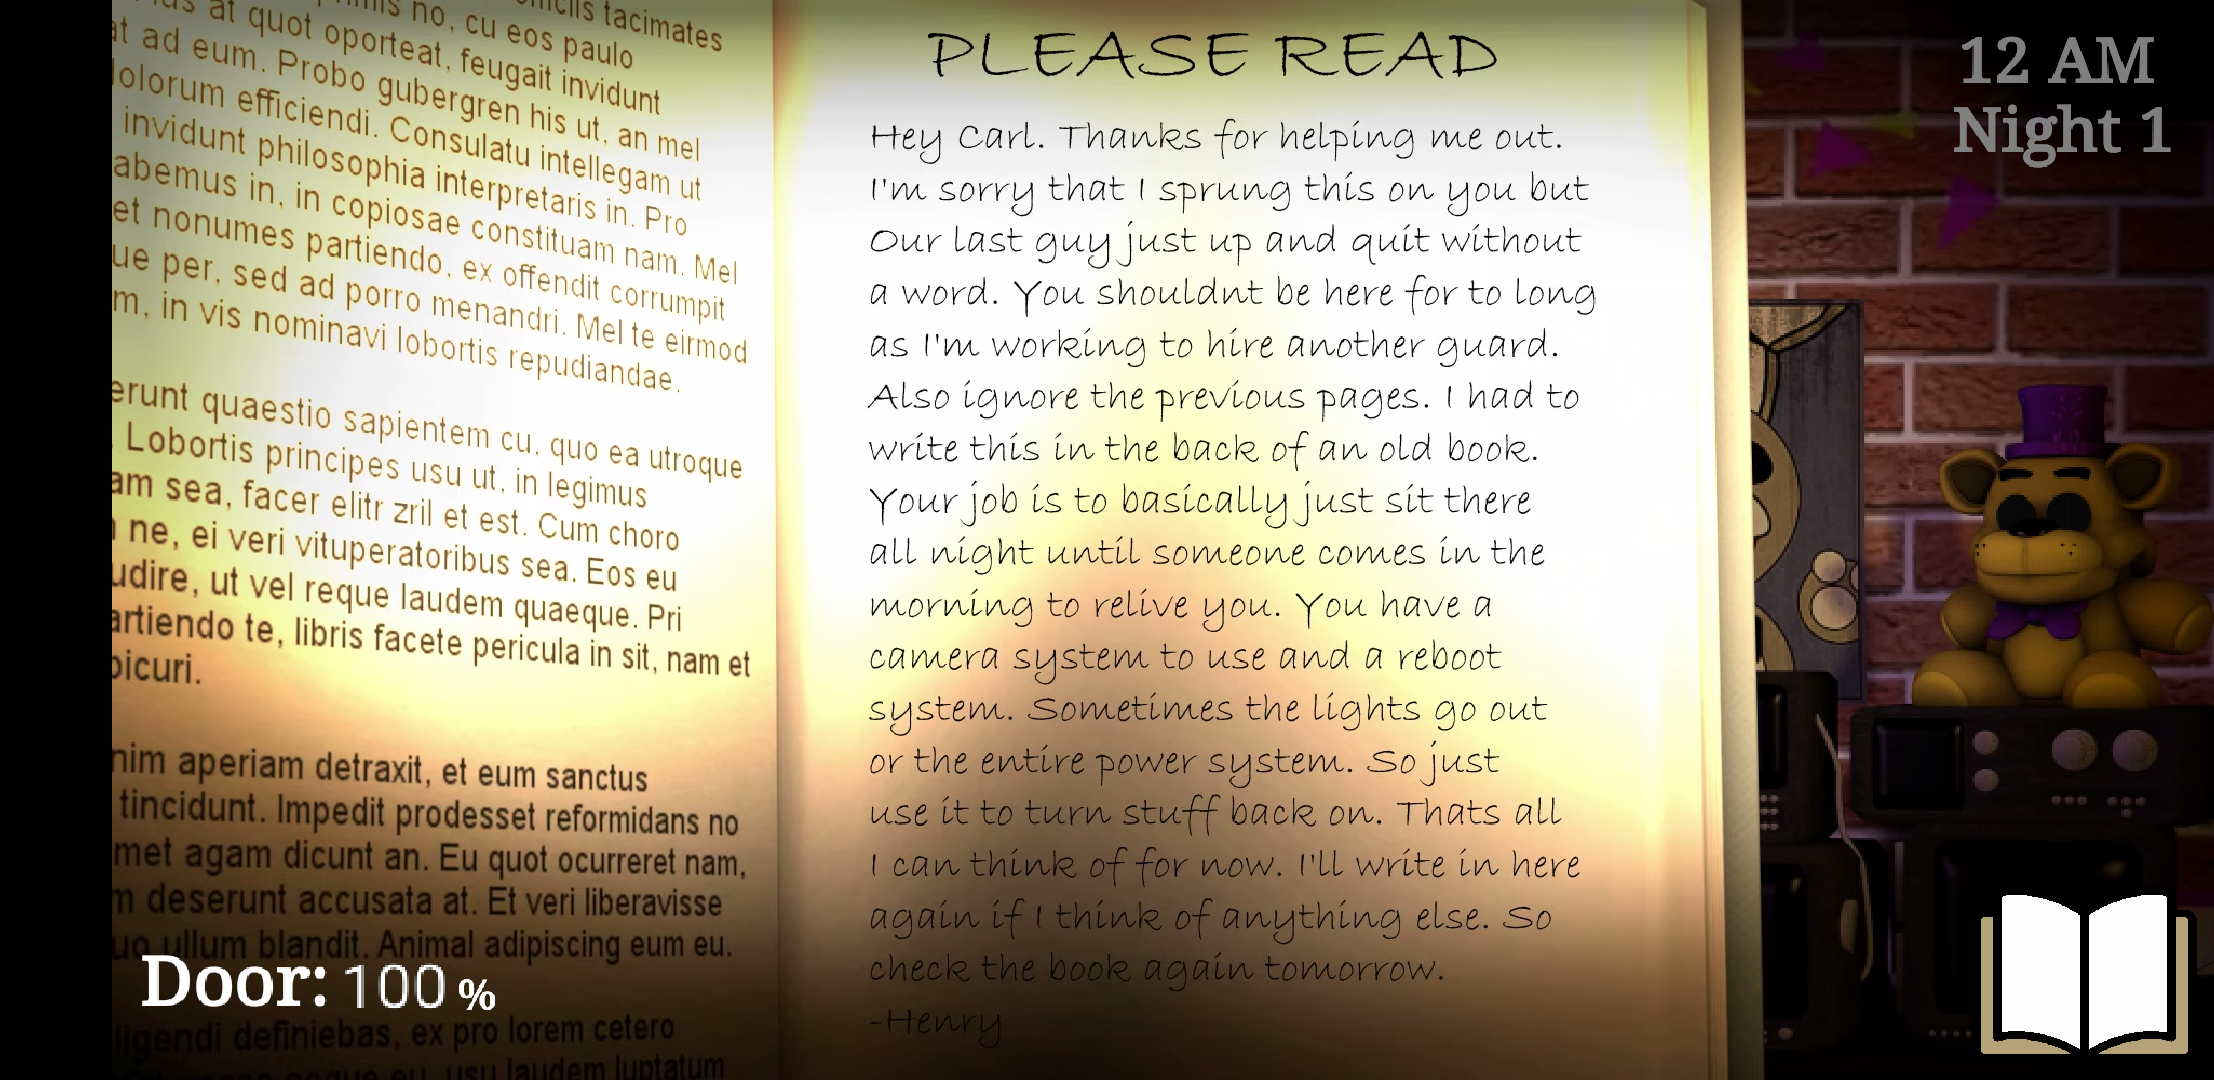 tacimates
at quot oporteat, feugait invidunt
no, cu eos paulo
at ad eum. Probo gubergren his ut, an mel
dolorum efficiendi. Consulatu intellegam ut
invidunt philosophia interpretaris in. Pro
abemus in, in copiosae constituam nam. Mel
et nonumes partiendo, ex offendit corrumpit
ue per, sed ad porro menandri. Mel te eirmod
m, in vis nominavi lobortis repudiandae.
erunt quaestio sapientem cu, quo ea utroque
. Lobortis principes usu ut, in legimus
am sea, facer elitr zril et est. Cum choro
ne, ei veri vituperatoribus sea. Eos eu
udire, ut vel reque laudem quaeque. Pri
artiendo te, libris facete pericula in sit, nam et
picuri.
nim aperiam detraxit, et eum sanctus
tincidunt. Impedit prodesset reformidans no
met agam dicunt an. Eu quot ocurreret nam,
m deserunt accusata at. Et veri liberavisse
uo ullum blandit. Animal adipiscing eum eu.
ligendi definiebas, ex pro lorem cetero
usu laudem luptatum
Door: 100 %
PLEASE READ
Hey Carl. Thanks for helping me out.
I'm sorry that I sprung this on you but
Our last guy just up and quit without
a word. You shouldnt be here for to long
as I'm working to hire another guard.
Also ignore the previous pages. I had to
write this in the back of an old book.
Your job is to basically just sit there
all night until someone comes in the
morning to relive you. You have a
camera system to use and a reboot
system. Sometimes the lights go out
or the entire power system. So just
use it to turn stuff back on. Thats all
I can think of for now. I'll write in here
again if I think of anything else. So
check the book again tomorrow.
-Henry
12 AM
Night 1